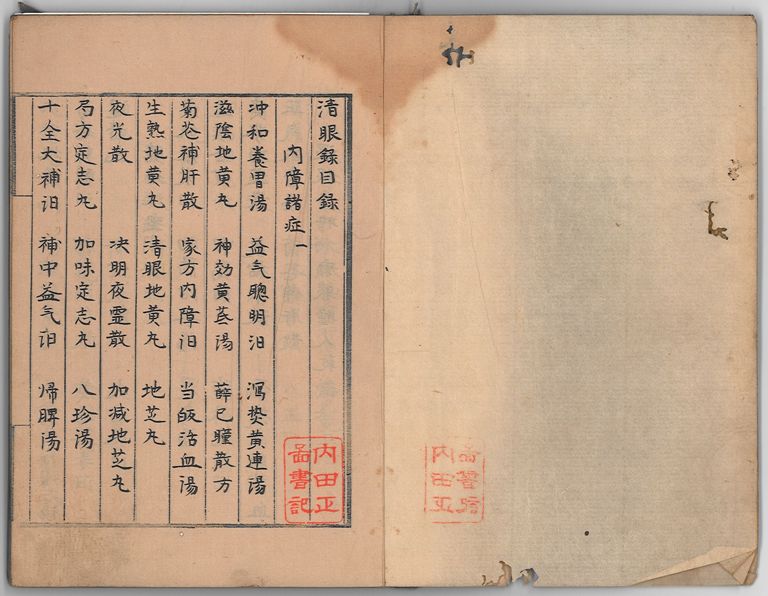 清眼錄目錄
內障諸症一
冲和養胃湯 益气聰明汨 瀉熱黃連湯
滋陰地黃丸 神効黃芪湯 薛己瞳散方
菊花補肝散 家方內障汨 当皈活血湯
生熟地黃丸 清眼地黃丸 地芝丸
夜光散 决明夜霊散 加減地芝丸
局方定志丸 加味定志丸 八珍湯
十全大補汨 補中益气汨 帰脾湯
内田正
書記